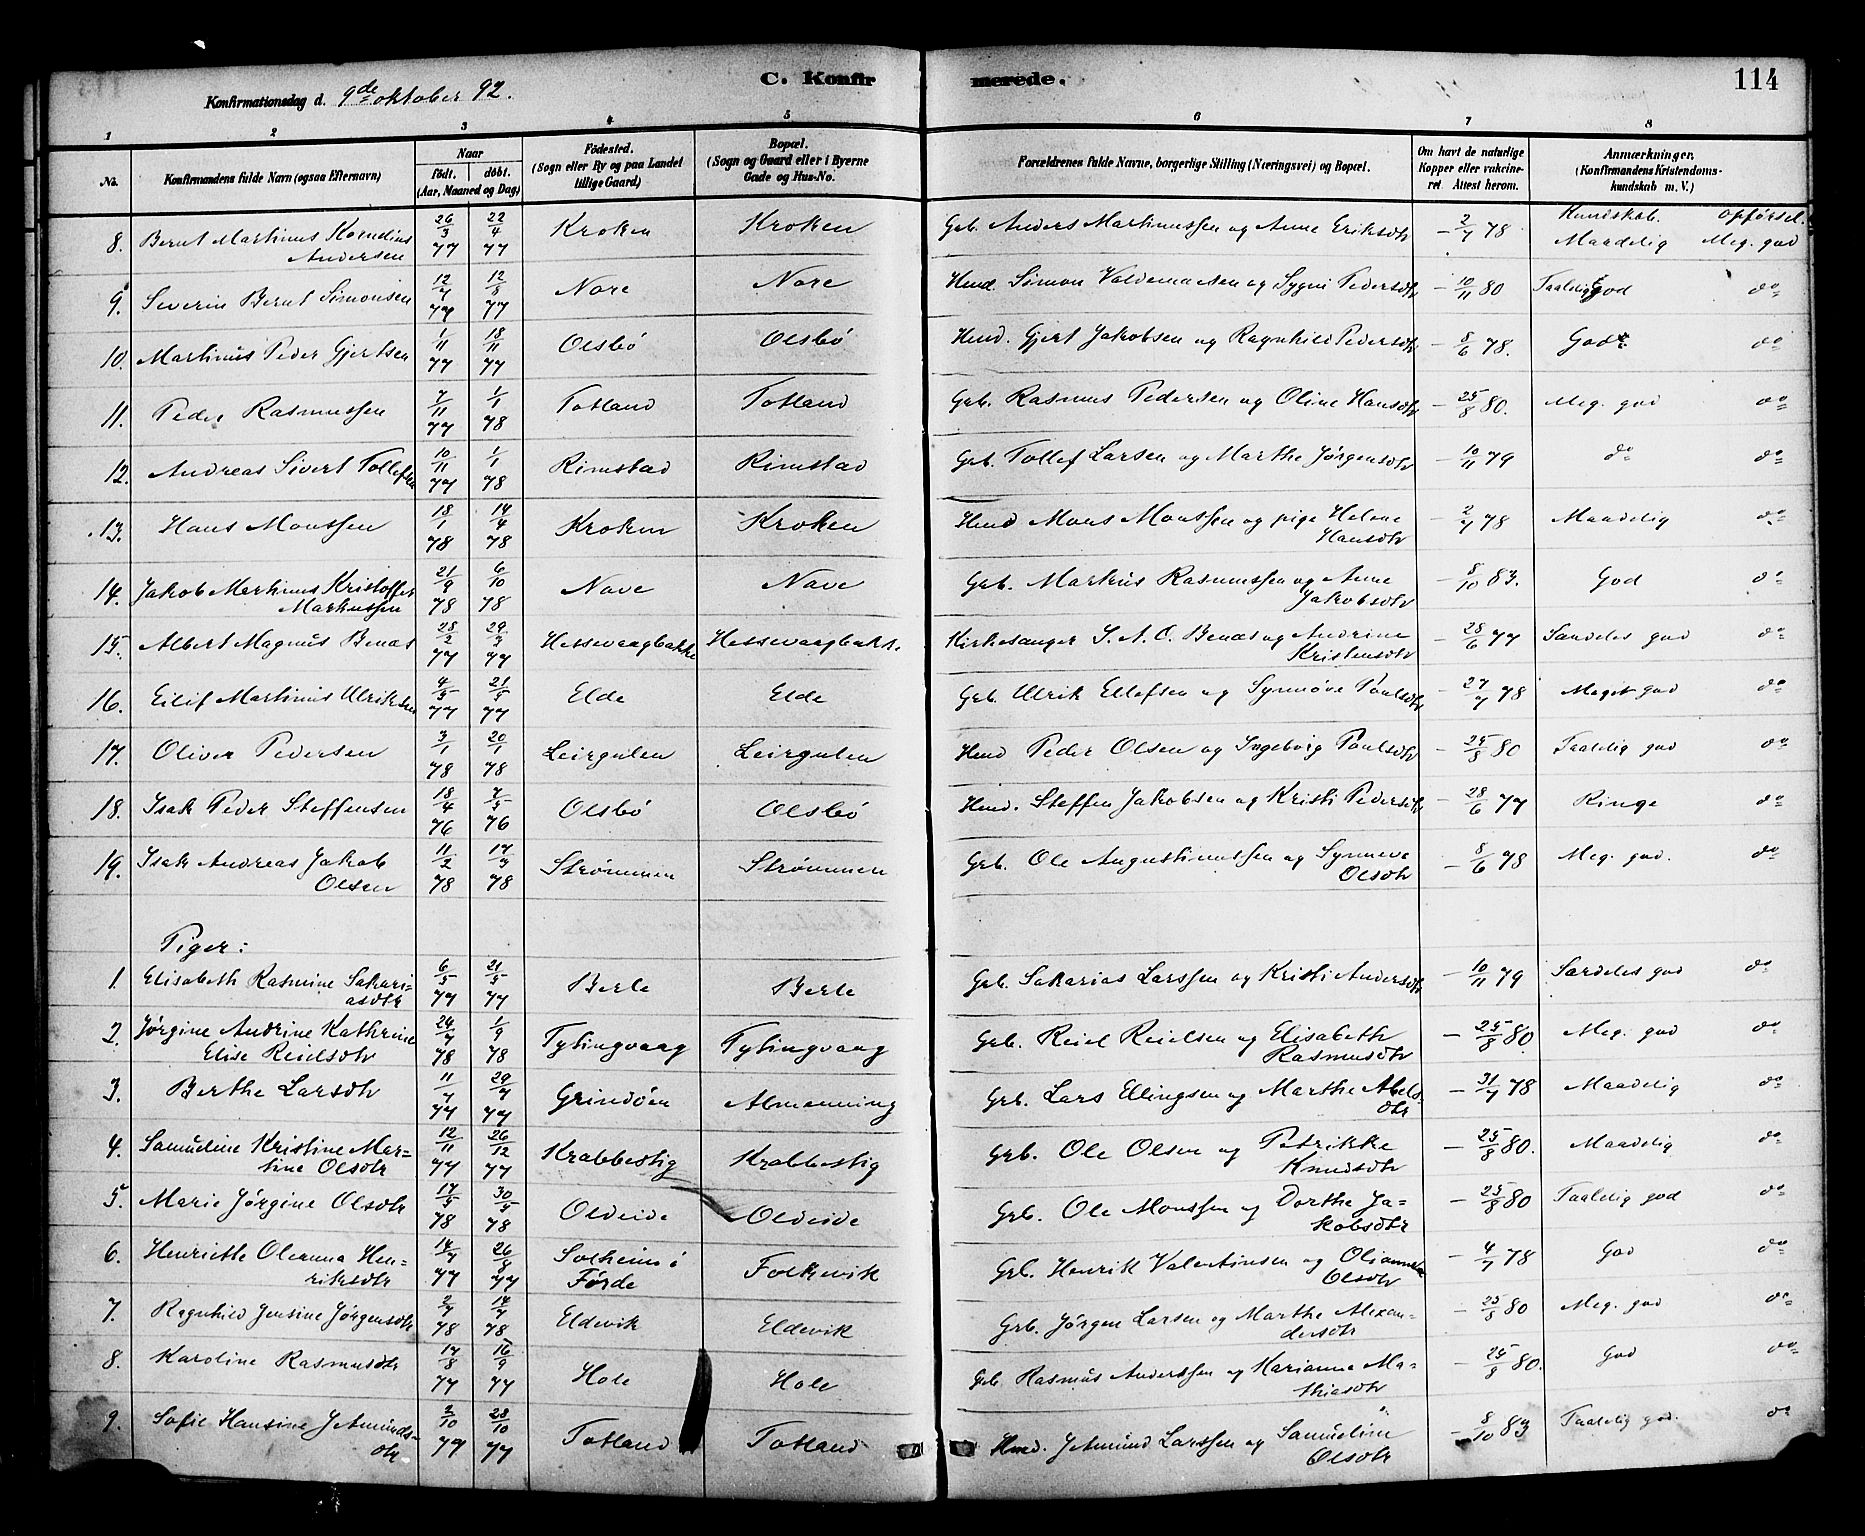 C. Konfirmerede. 114
Konfirmationsdag d. 9de oktober 92.
1 2 3 4 5 6 7 8
No. Konfirmandens fulde Navn (ogsaa Efternavn) Naar født. døbt. (Aar, Maaned og Dag) Fødested. (Sogn eller By og paa Landet tillige Gaard) Bopæl. (Sogn og Gaard eller i Byerne Gade og Hus-No. Forældrenes fulde Navne, borgerlige Stilling (Næringsvei) og Bopæl. Om havt de naturlige Kopper eller vakcineret. Attest herom. Anmærkninger. (Konfirmandens Kristendomskundskab m. V.)
Kundskab. Opførsel.
8. Bernt Martinus Kornelius Andersen 26/3 77 22/4 77 Kroken Kroken Grb. Anders Martinussen og Anne Eriksdtr - 2/7 78 Maadelig Meg. god
9. Severin Bernt Simonsen 12/4 77 12/5 77 Nore Nore Hmd. Simon Valdemarsen og Sygni Pedersdtr - 10/11 80 Taalelig god do
10. Martinus Peder Gjertsen 1/11 77 18/11 77 Olsbø Olsbø Hmd. Gjert Jakobsen og Ragnhild Pedersdtr - 8/6 78. God do
11. Peder Rasmussen 7/11 77 1/1 78 Totland Totland Grb. Rasmus Pedersen og Oline Hansdtr - 25/8 80. Meg. god do
12. Andreas Sivert Tollefsen 10/11 77 1/1 78 Rimstad Rimstad Grb. Tollef Larsen og Marthe Jørgensdtr - 10/11 79 do do
13. Hans Monssen 18/1 78 14/4 78 Kroken Kroken Hmd Mons Monssen og pige Helene Hansdtr - 2/7 78 Maadelig do
14. Jakob Martinus Kristoffer Markussen 21/9 78 6/10 78 Nave Nave Grb. Markus Rasmussen og Anne Jakobsdtr - 8/10 83. God do
15. Albert Magnus Benas 28/2 77 29/3 77 Hessevaagbakke Hessevaagbakk. Kirkesanger S. A. O. Benas og Andrine Kristensdtr - 28/6 77 Særdeles god do
16. Eilif Martinus Ulriksen 4/5 77 21/5 77 Elde Elde Grb. Ulrik Ellefsen og Synnøve Paulsdtr - 27/7 78 Meget god do
17. Oliver Pedersen 3/1 78 20/1 78 Leirgulen Leirgulen Hmd Peder Olsen og Ingeborg Paulsdtr - 25/8 80 Taalelig god do
18. Isak Peder Steffensen 18/4 76 7/5 76 Olsbø Olsbø Hmd. Steffen Jakobsen og Kristi Pedersdtr - 28/6 77 Ringe do
19. Isak Andreas Jakob Olsen 11/2 78 17/3 78 Strømmen Strømmen Grb. Ole Augustinussen og Synneve Olsdtr - 8/6 78 Meg. god. do
Piger:
1 Elisabeth Rasmine Sakariasdtr 6/5 77 21/5 77 Berle Berle Grb. Sakarias Larssen og Kristi Andersdtr - 10/11 79 Særdeles god do
2. Jørgine Andrine Kathrine Elise Reielsdtr 24/7 78 1/9 78 Tytingvaag Tytingvaag Grb. Reiel Reielsen og Elisabeth Rasmusdtr - 25/8 80. Meg. god do
3. Berthe Larsdtr 11/7 77 29/7 77 Grindøen Almenning Grb. Lars Ellingsen og Marthe Abelsdtr - 31/7 78 Maadelig do
4. Samueline Kristine Martine Olsdtr 12/11 77 26/12 77 Krabbestig Krabbestig Grb. Ole Olsen og Petrikke Knudsdtr - 25/8 80. Maadelig do
5. Marie Jørgine Olsdtr 17/5 78 30/5 78 Oldeide Oldeide Grb. Ole Monssen og Dorthe Jakobsdtr - 25/8 80 Taalelig god do
6. Henriette Oleanna Henriksdtr 14/7 77 26/8 77 Solheim i Førde Folkevik Grb. Henrik Valentinsen og Olianna Olsdtr - 4/7 78 God do
7. Ragnhild Jensine Jørgensdtr 2/7 78 14/7 78 Eldevik Eldevik Grb. Jørgen Larsen og Marthe Alexandersdtr - 25/8 80 Meg. god do
8. Karoline Rasmusdtr 17/8 77 16/9 77 Hole Hole Grb. Rasmus Anderssen og Marianna Mathiasdtr - 25/8 80. God do
9. Sofie Hansine Jetmundsdtr 2/10 77 28/10 77 Totland Totland Hmd. Jetmund Larssen og Samueline Olsdtr - 8/10 83 Taalelig god. do